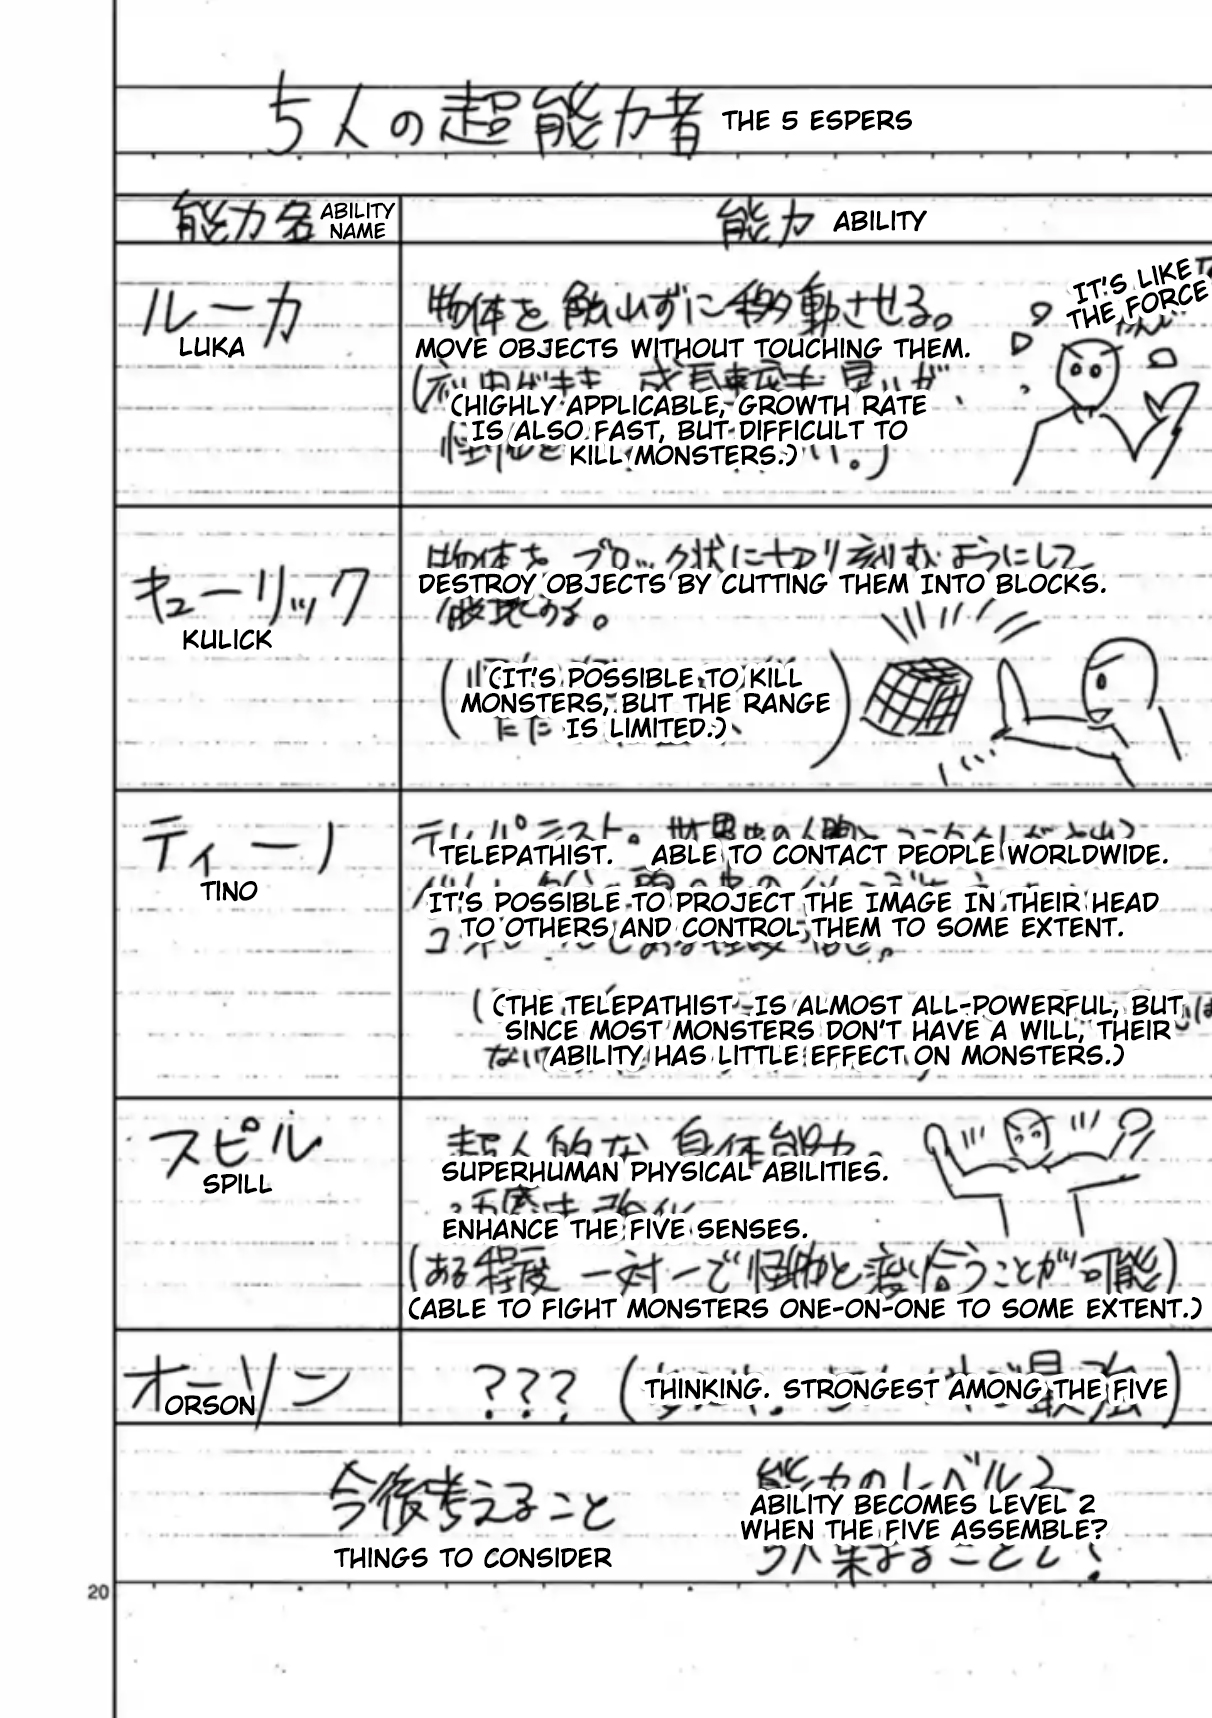 5人の超能力者 THE 5 ESPERS
能力名 ABILITY
NAME
能力 ABILITY
ルーカ
LUKA
物体を触れずに移動させる。
MOVE OBJECTS WITHOUT TOUCHING THEM.
(HIGHLY APPLICABLE, GROWTH RATE
IS ALSO FAST, BUT DIFFICULT TO
KILL MONSTERS.)
IT'S LIKE
THE FORCE
キューリック
KULICK
物体を ブロック状に切り刻むようにして
DESTROY OBJECTS BY CUTTING THEM INTO BLOCKS.
(IT'S POSSIBLE TO KILL
MONSTERS, BUT THE RANGE
IS LIMITED.)
ティーノ
TINO
TELEPATHIST. ABLE TO CONTACT PEOPLE WORLDWIDE.
IT'S POSSIBLE TO PROJECT THE IMAGE IN THEIR HEAD
TO OTHERS AND CONTROL THEM TO SOME EXTENT.
(THE TELEPATHIST IS ALMOST ALL-POWERFUL, BUT
SINCE MOST MONSTERS DON'T HAVE A WILL, THEIR
ABILITY HAS LITTLE EFFECT ON MONSTERS.)
スピル
SPILL
超人的な 身体能力。
SUPERHUMAN PHYSICAL ABILITIES.
ENHANCE THE FIVE SENSES.
(ある程度 一対一で怪物と渡り合うことが可能)
(ABLE TO FIGHT MONSTERS ONE-ON-ONE TO SOME EXTENT.)
オーソン
ORSON
??? (
THINKING. STRONGEST AMONG THE FIVE
最強)
今後考えること
THINGS TO CONSIDER
能力のレベル2
ABILITY BECOMES LEVEL 2
WHEN THE FIVE ASSEMBLE?
20